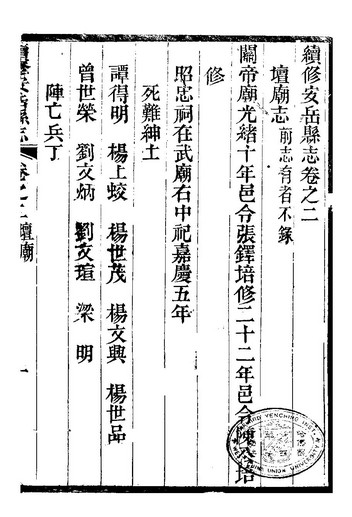 續修安岳縣志卷之二
壇廟志 前志有者不錄
關帝廟光緒十年邑令張鐸培修二十二年邑令陳
培
修
昭忠祠在武廟右中祀嘉慶五年
死難紳士
譚得明 楊上蛟 楊世茂 楊文興 楊世品
曾世榮 劉文炳 劉文瑄 梁明
陣亡兵丁
續修安岳縣志 卷之二 壇廟 一